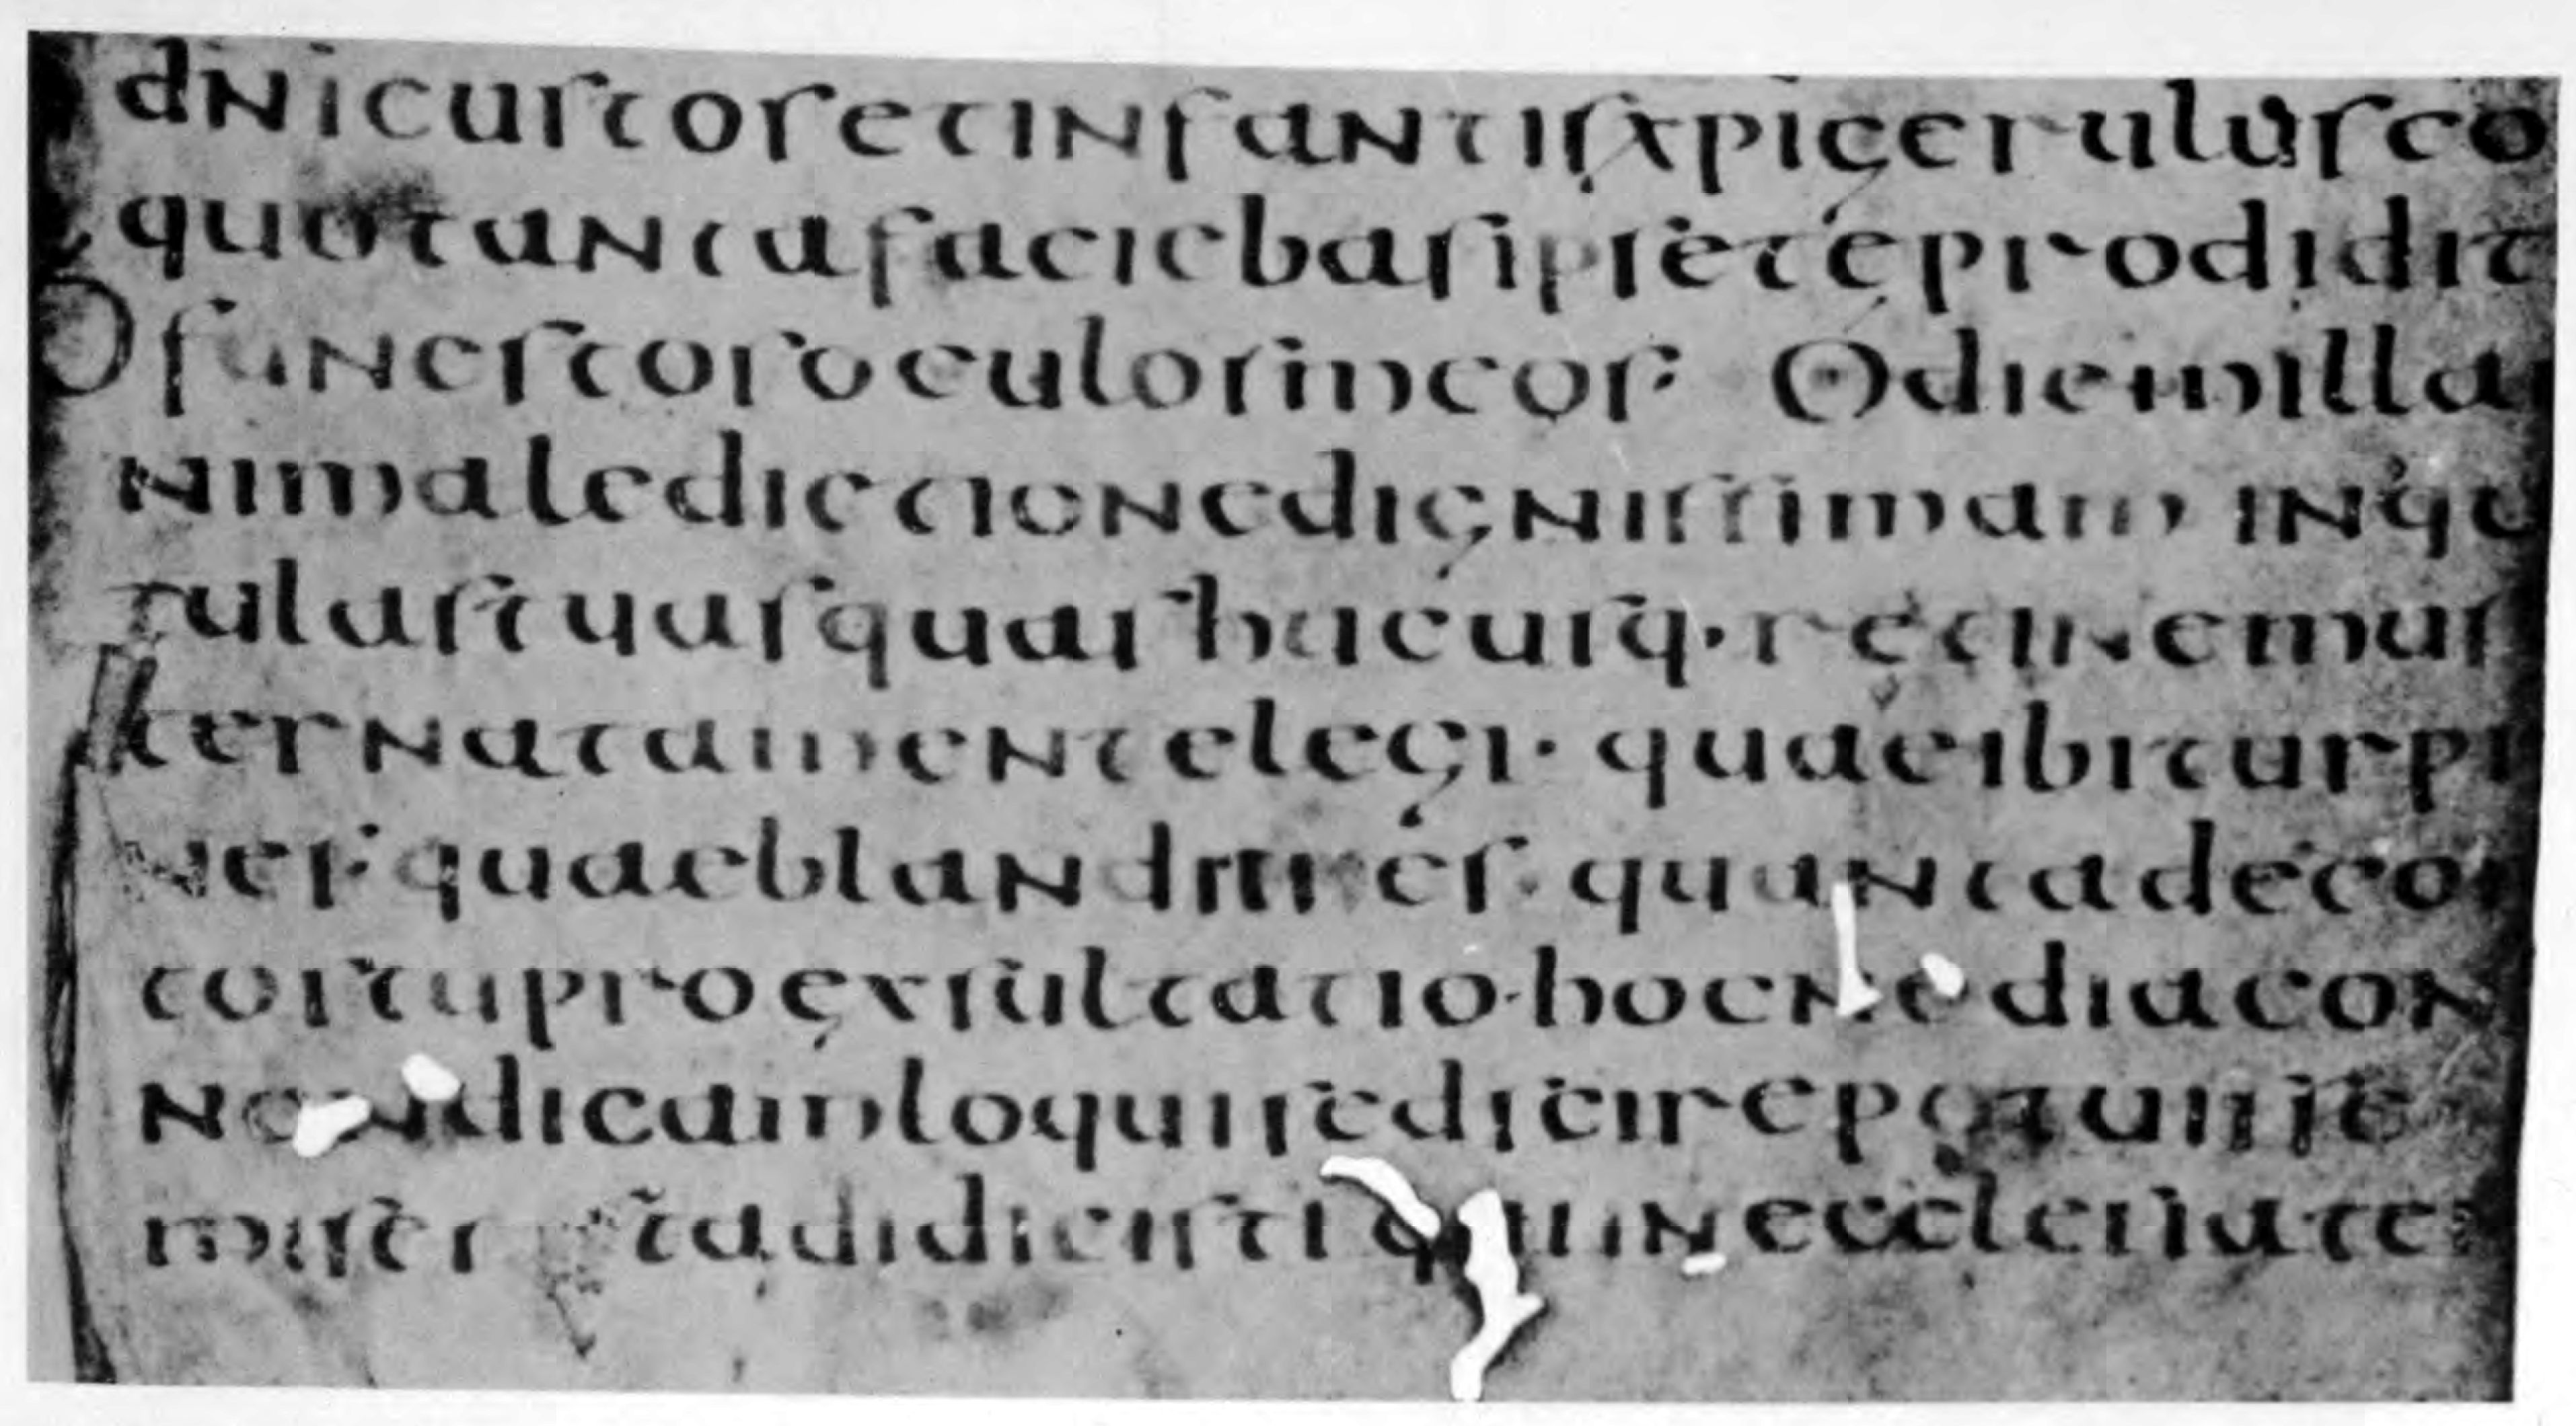 dnicustosetinfantisxpigerulusco
quotantafaciebasipseteprodidit
Ofunestosoculosineos· Odiemilla
nimaledictionedignissimam inqu
tulastuasquashucusq·retinemus
ternatamentelegi·quaeibiturpi
nes·quaeblanditiaes·quantadeco
tostuproexsultatio·hocnediacon
nondicamloquisedscirepotuisse
miser istadidicisti quiinecclesiate